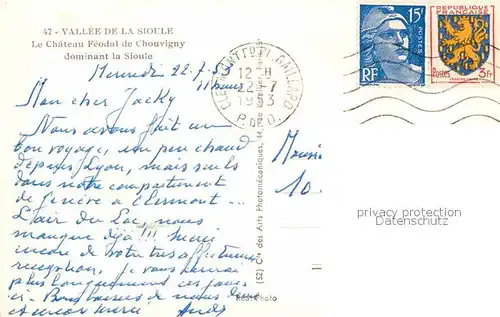 47 - VALLÉE DE LA SIOULE
Le Château Féodal de Chouvigny
dominant la Sioule
Mercredi 22-7-53
11 heures
Mon cher Jacky
Nous avons fait un
bon voyage, un peu chaud
depuis Lyon, mais seuls
dans notre compartiment
de Genève à Clermont ...
L'air du Lac, nous
manque déjà !!! Merci
encore de votre très affectueuse
réception, je vous
plus longuement ces jours
ci - Bons baisers de nous deux
et encore merci
Réal-Photo
(52) Cie des Arts Photomécaniques, 44, rue
CLERMONT-FD GAILLARD
12 H
22-7
1953
P. DE D.
Monsi
10
15F
POSTES
RF
REPUBLIQUE
FRANÇAISE
POSTES
5Fr
privacy protection
Datenschutz